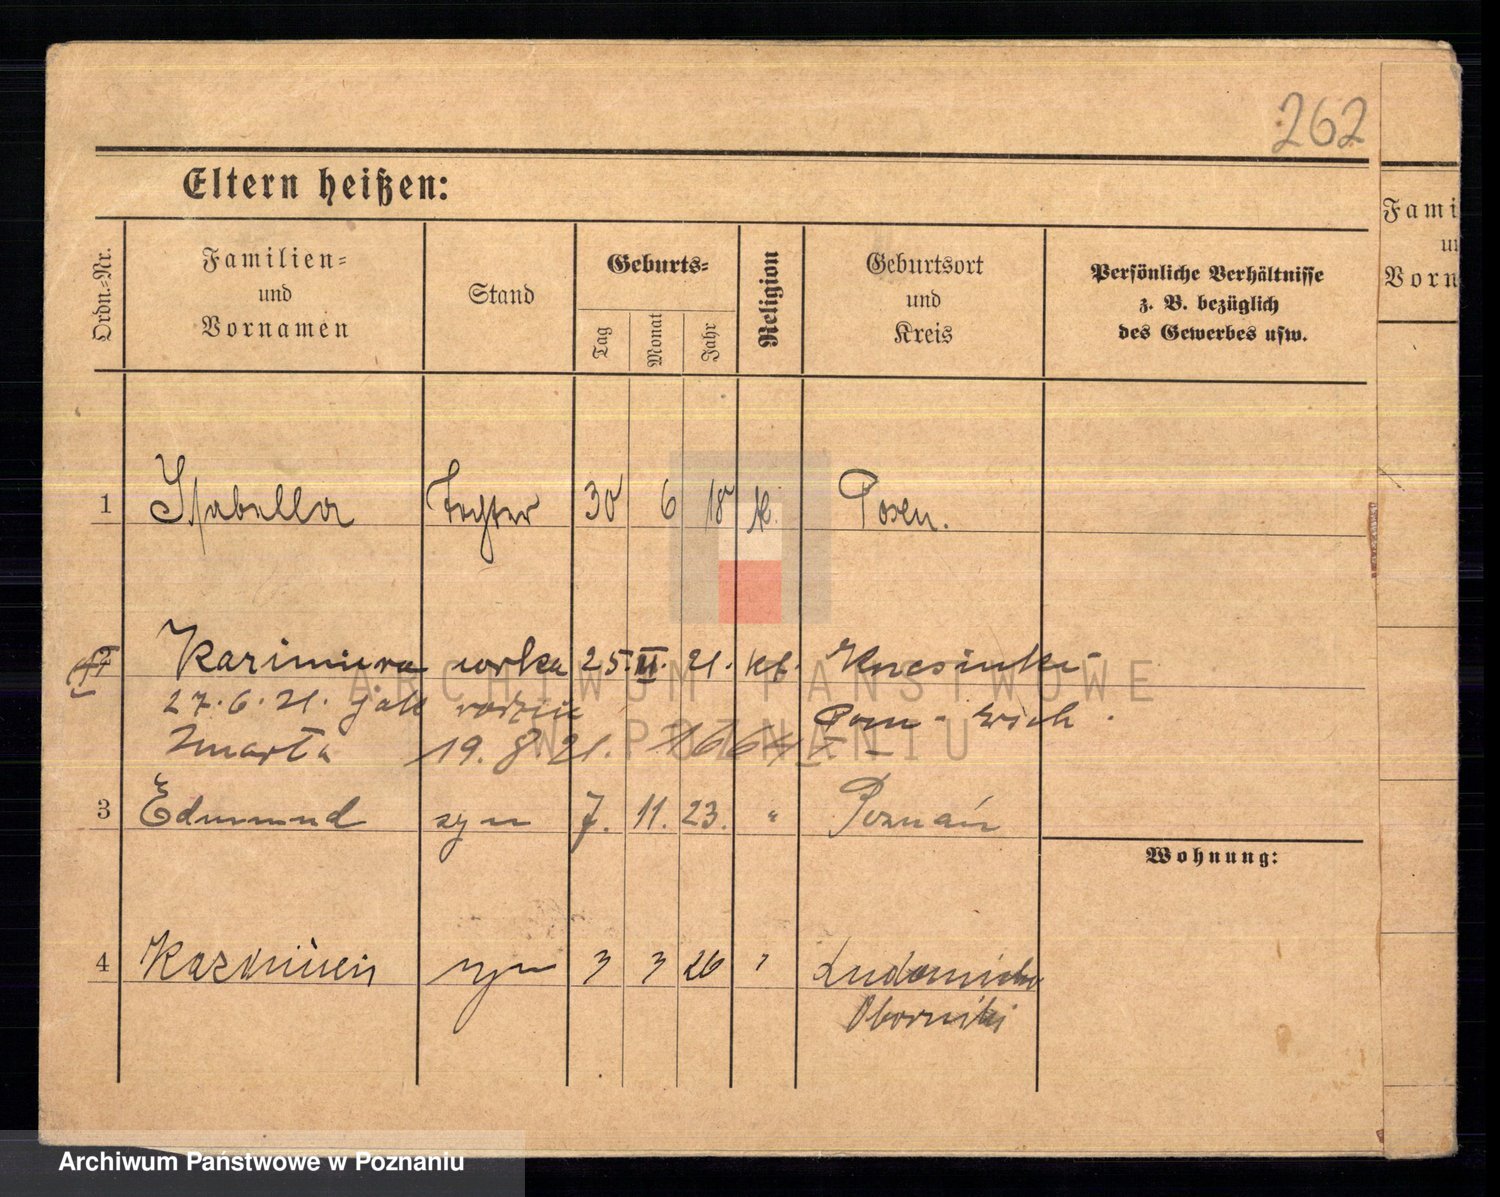 262
Eltern heißen:
Ordn.-Nr.
Familien-
und
Vornamen
Stand
Geburts-
Tag
Monat
Jahr
Religion
Geburtsort
und
Kreis
Persönliche Verhältnisse
z. B. bezüglich
des Gewerbes usw.
Fami
un
Vorn
1 Isabella 30 6 18 k. Posen.
2 Kazimiera corka 25. II. 21. kt.
27.6.21. jak
zmarła 19. 8 21.
3 Edmund syn 7. 11. 23. " Poznań
Wohnung:
4 Kazimierz syn 3 3 26
Oborniki
ARCHIWUM PAŃSTWOWE
W POZNANIU
Archiwum Państwowe w Poznaniu